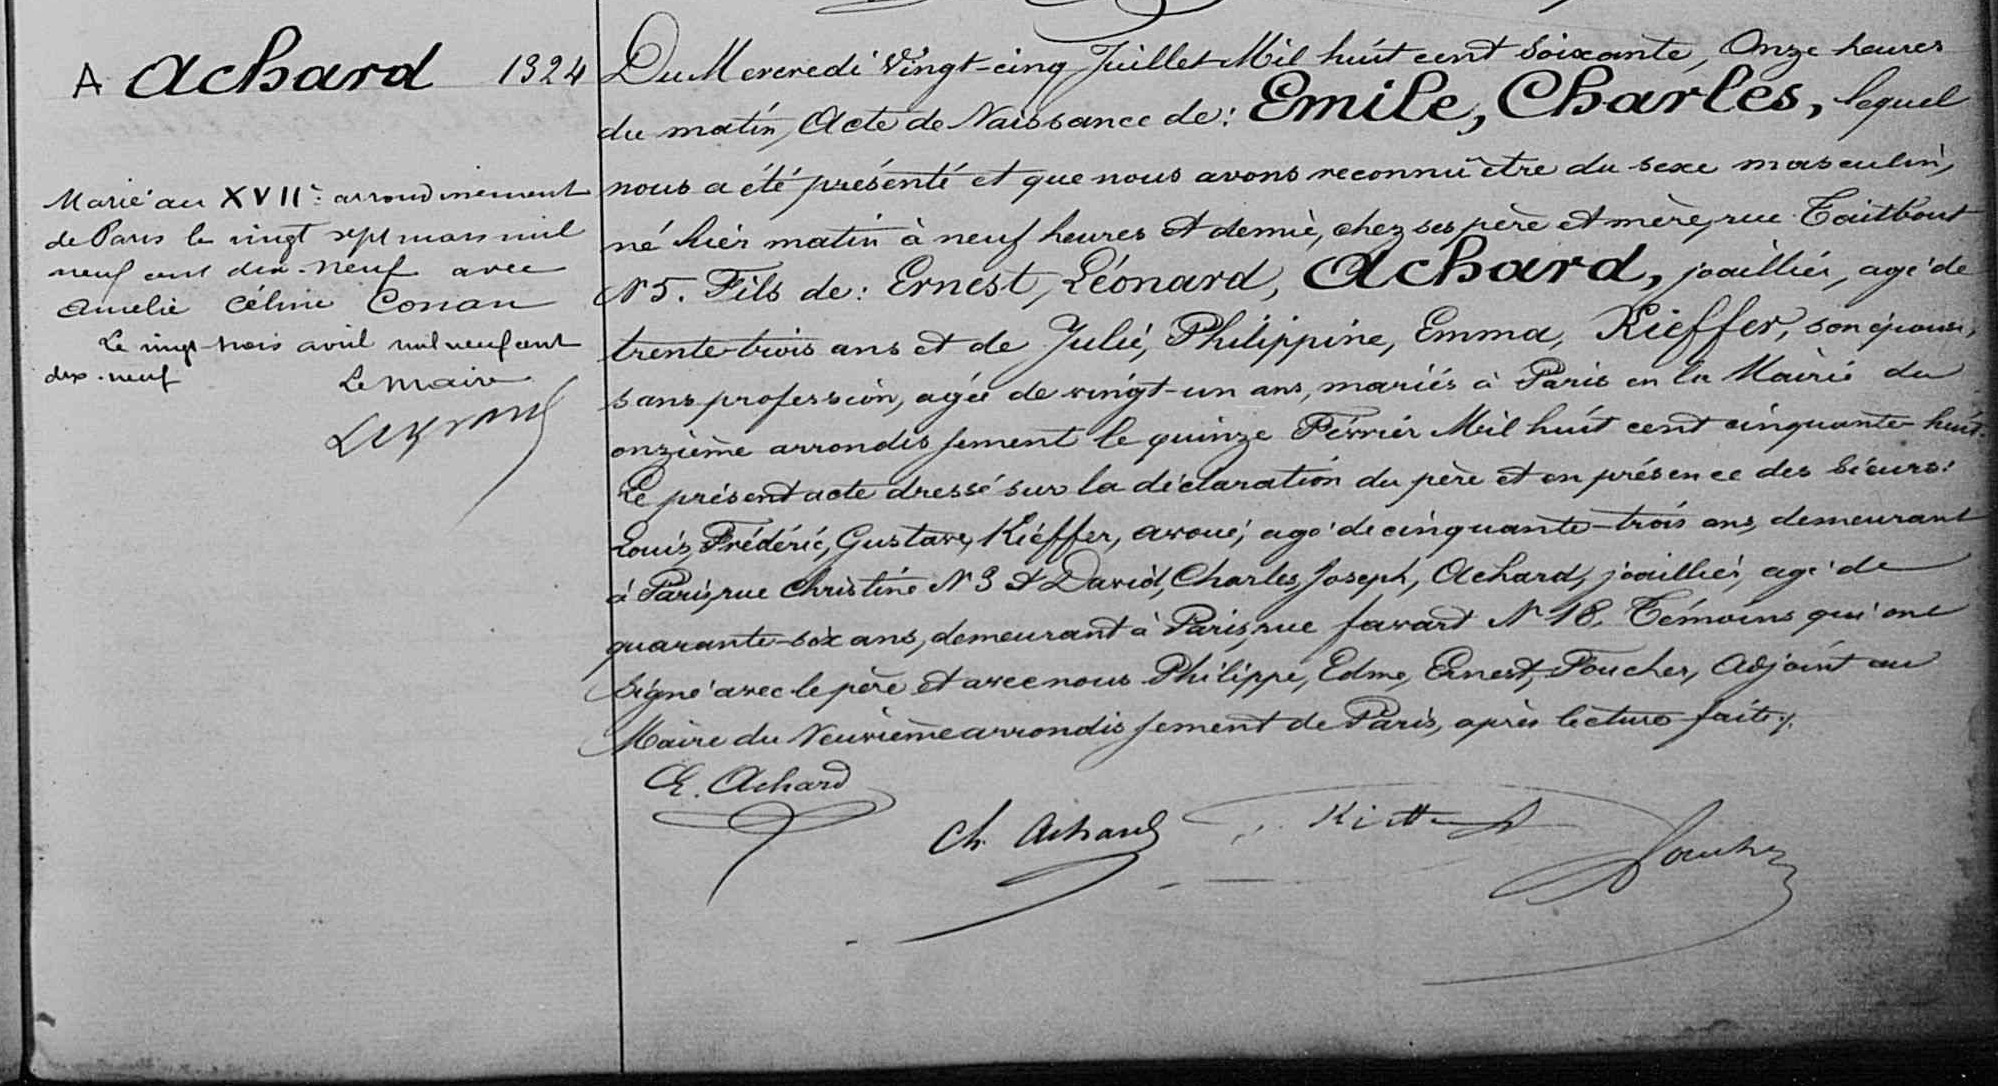 A Achard 1324
Marié au XVIIe arrondissement
de Paris le vingt sept mars mil
neuf cent dix-neuf avec
Amelie Céline Conan
Le vingt-trois avril mil neuf cent
dix-neuf Le Maire
Du Mercredi Vingt-cinq Juillet Mil huit cent soixante, Onze heures
du matin, Acte de Naissance de: Emile, Charles, lequel
nous a été présenté et que nous avons reconnu être du sexe masculin,
né hier matin à neuf heures et demie, chez ses père et mère, rue Taitbout
N° 5. Fils de: Ernest, Léonard, Achard, joaillier, agé de
trente-trois ans et de Julie, Philippine, Emma, Kieffer, son épouse,
sans profession, agée de vingt-un ans, mariés à Paris en la Mairie du
onzième arrondissement le quinze Février Mil huit cent cinquante-huit.
Le présent acte dressé sur la déclaration du père et en présence des Sieurs:
Louis, Frédéric, Gustave, Kieffer, avoué, agé de cinquante-trois ans, demeurant
à Paris, rue Christine N° 3 et David, Charles, Joseph, Achard, joaillier, agé de
quarante-six ans, demeurant à Paris, rue favart N° 18. Témoins qui ont
signé avec le père et avec nous Philippe, Edme, Ernest, Foucher, Adjoint au
Maire du Neuvième arrondissement de Paris, après lecture faite.
E. Achard
Ch. Achard Kieffer Foucher